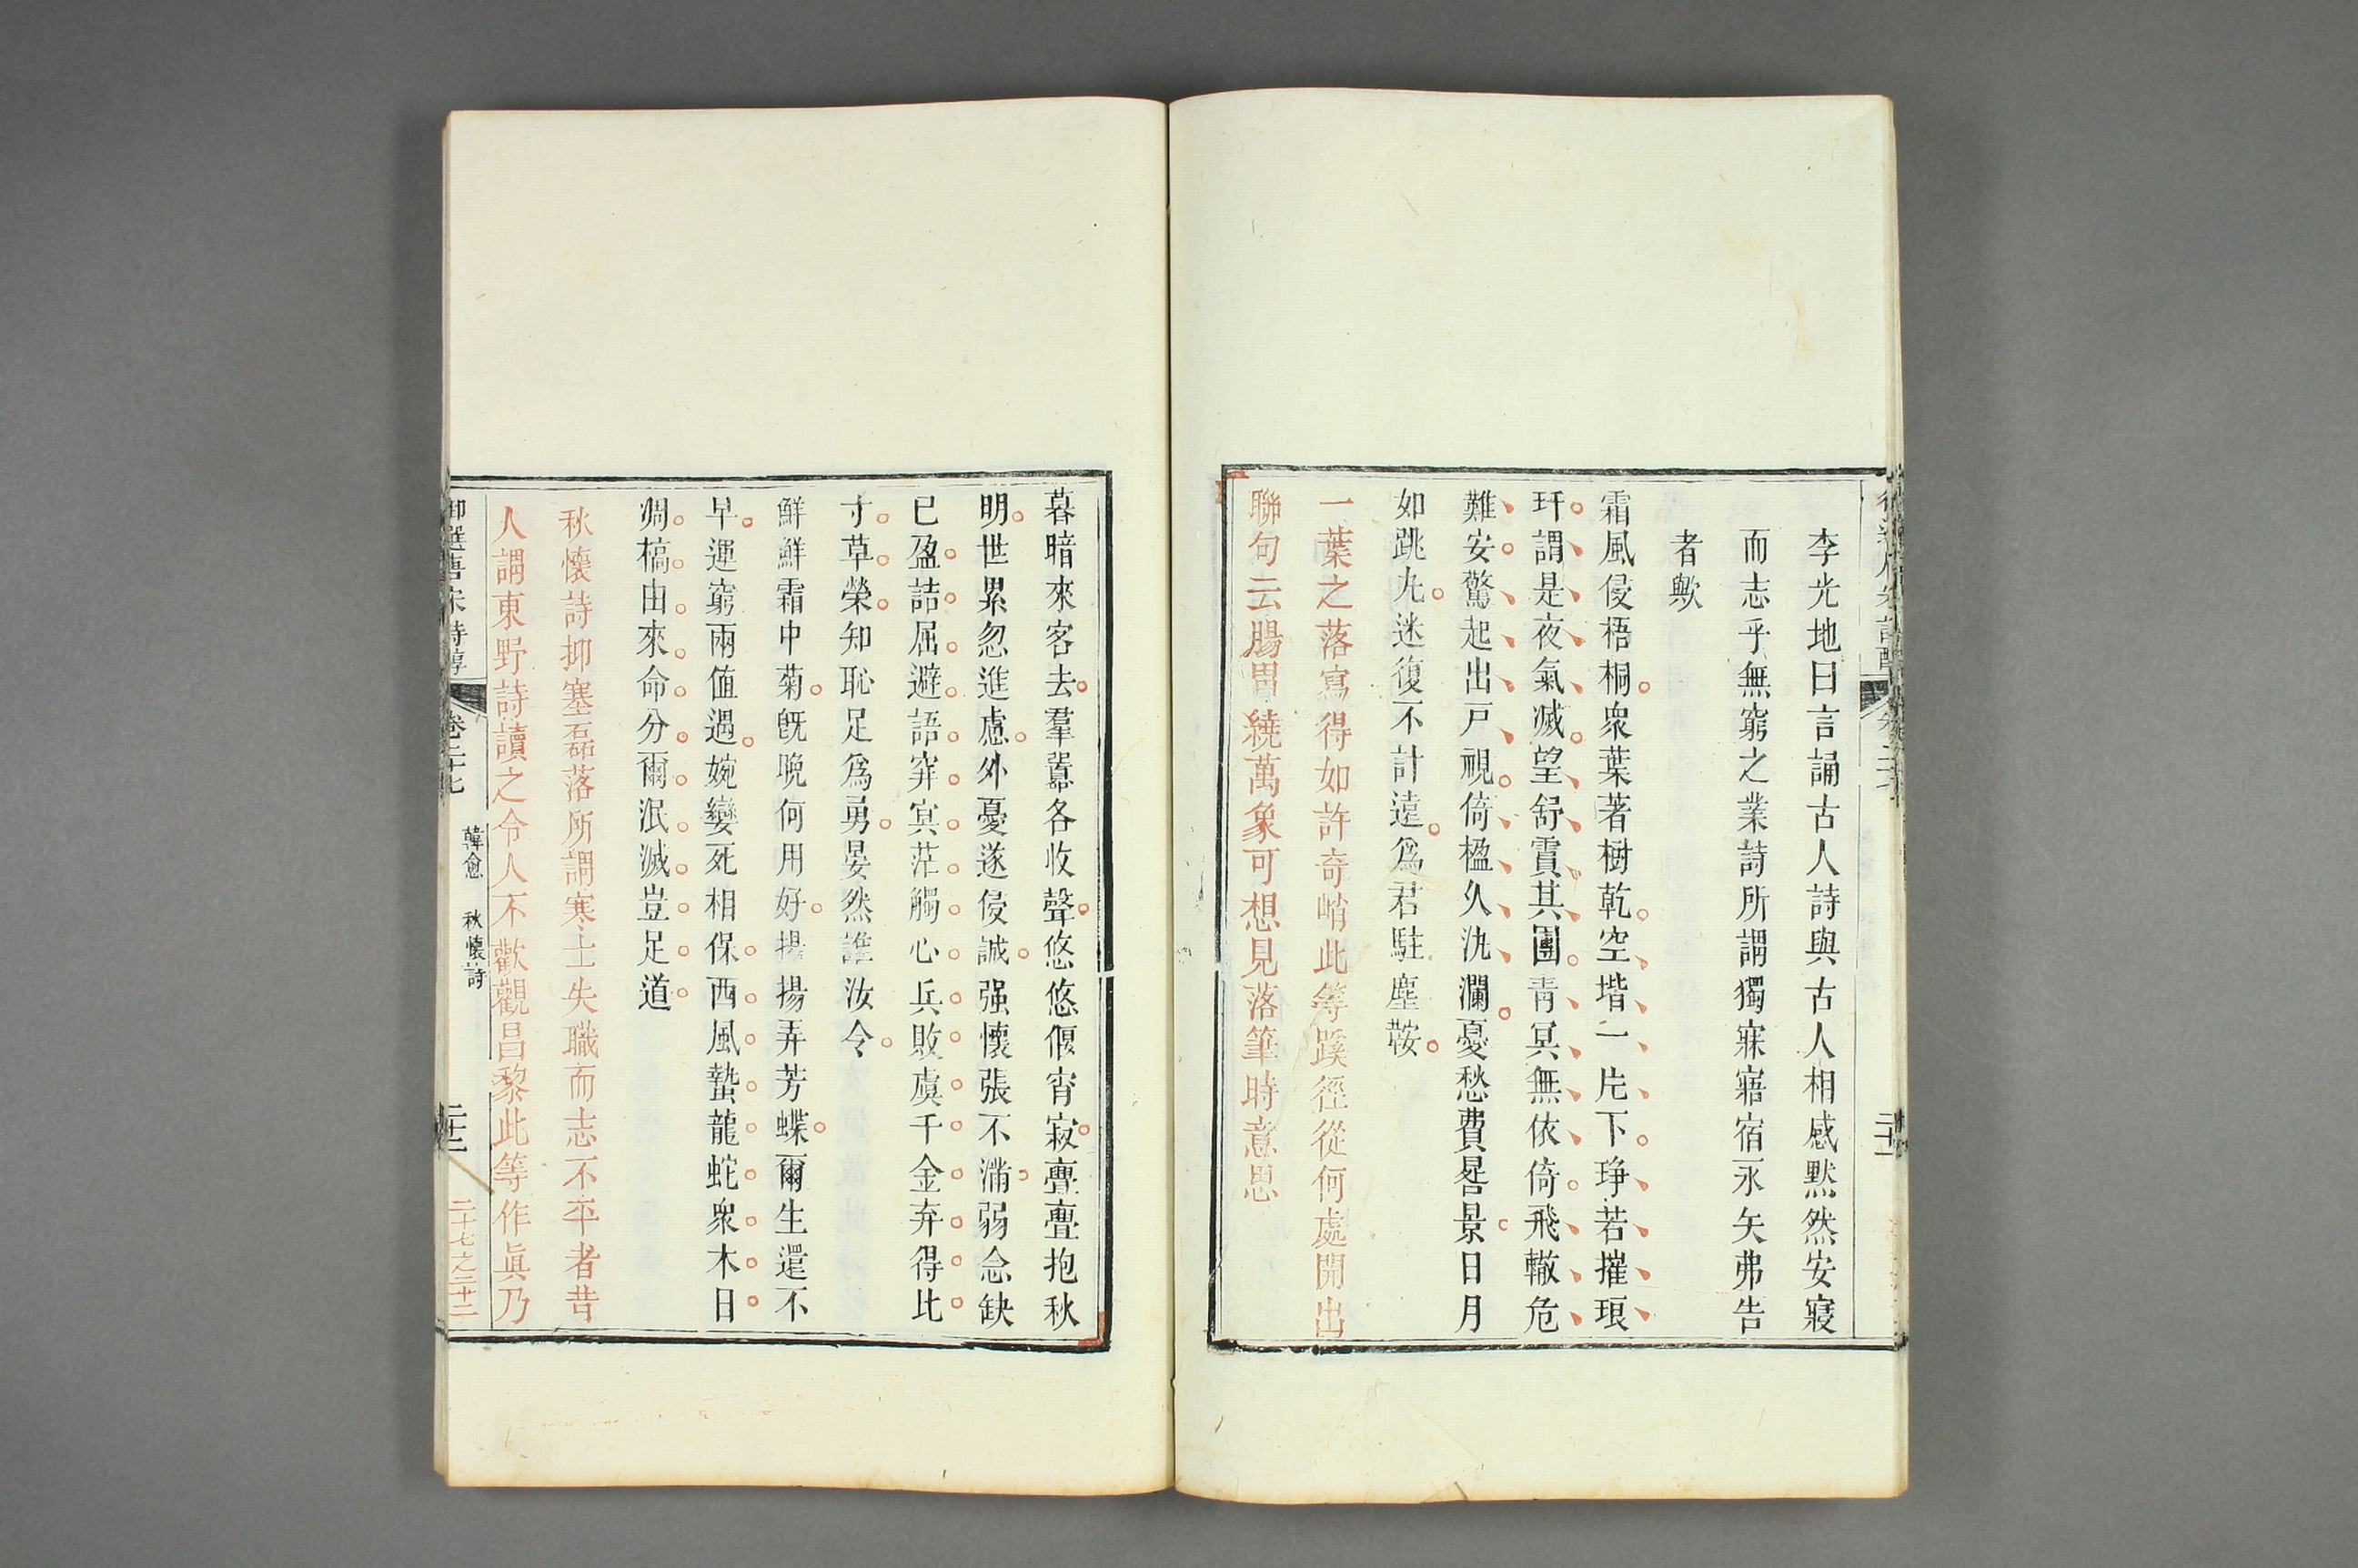 李光地曰言誦古人詩與古人相感默然安寢
而志乎無窮之業詩所謂獨寐寤宿永矢弗告
者歟
霜風侵梧桐衆葉著樹乾空堦一片下琤若摧琅
玕謂是夜氣滅望舒霣其團青冥無依倚飛轍危
難安驚起出戸視倚楹久汍瀾憂愁費晷景日月
如跳丸迷復不計遠爲君駐塵鞍
一葉之落寫得如許奇峭此等蹊徑從何處開出
聯句云腸胃繞萬象可想見落筆時意思
暮暗來客去羣囂各收聲悠悠偃宵寂亹亹抱秋
明世累忽進慮外憂遂侵誠强懷張不滿弱念缺
已盈詰屈避語穽冥茫觸心兵敗虞千金弃得比
寸草榮知恥足爲勇晏然誰汝令
鮮鮮霜中菊旣晚何用好揚揚弄芳蝶爾生還不
早運窮兩値遇婉孌死相保西風蟄龍蛇衆木日
凋槁由來命分爾泯滅豈足道
秋懷詩抑塞磊落所謂寒士失職而志不平者昔
人謂東野詩讀之令人不歡觀昌黎此等作眞乃
御選唐宋詩醇 卷二十七 韓愈 秋懷詩 二十二 二十七之二十二